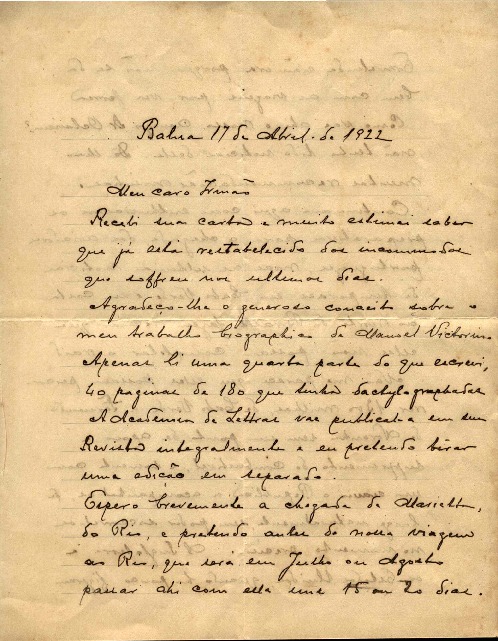 Bahia 17 de Abril. de 1922
Meu caro Irmão
Recebi sua carta e muito estimei saber
que já está restabelecido dos incommodos
que soffreu nos ultimos dias.
Agradeço-lhe o generoso conceito sobre o
meu trabalho biographico de Manoel Victorino
Apenas li uma quarta parte do que escrevi,
40 paginas de 180 que tinha dactylographadas
A Academia de Lettras vae publical-a em sua
Revista integralmente e eu pretendo tirar
uma edição em separado.
Espero brevemente a chegada de Marietta,
do Rio, e pretendo antes da nossa viagem
ao Rio, que será em Julho ou Agosto
passar ahi com ella uns 15 ou 20 dias.